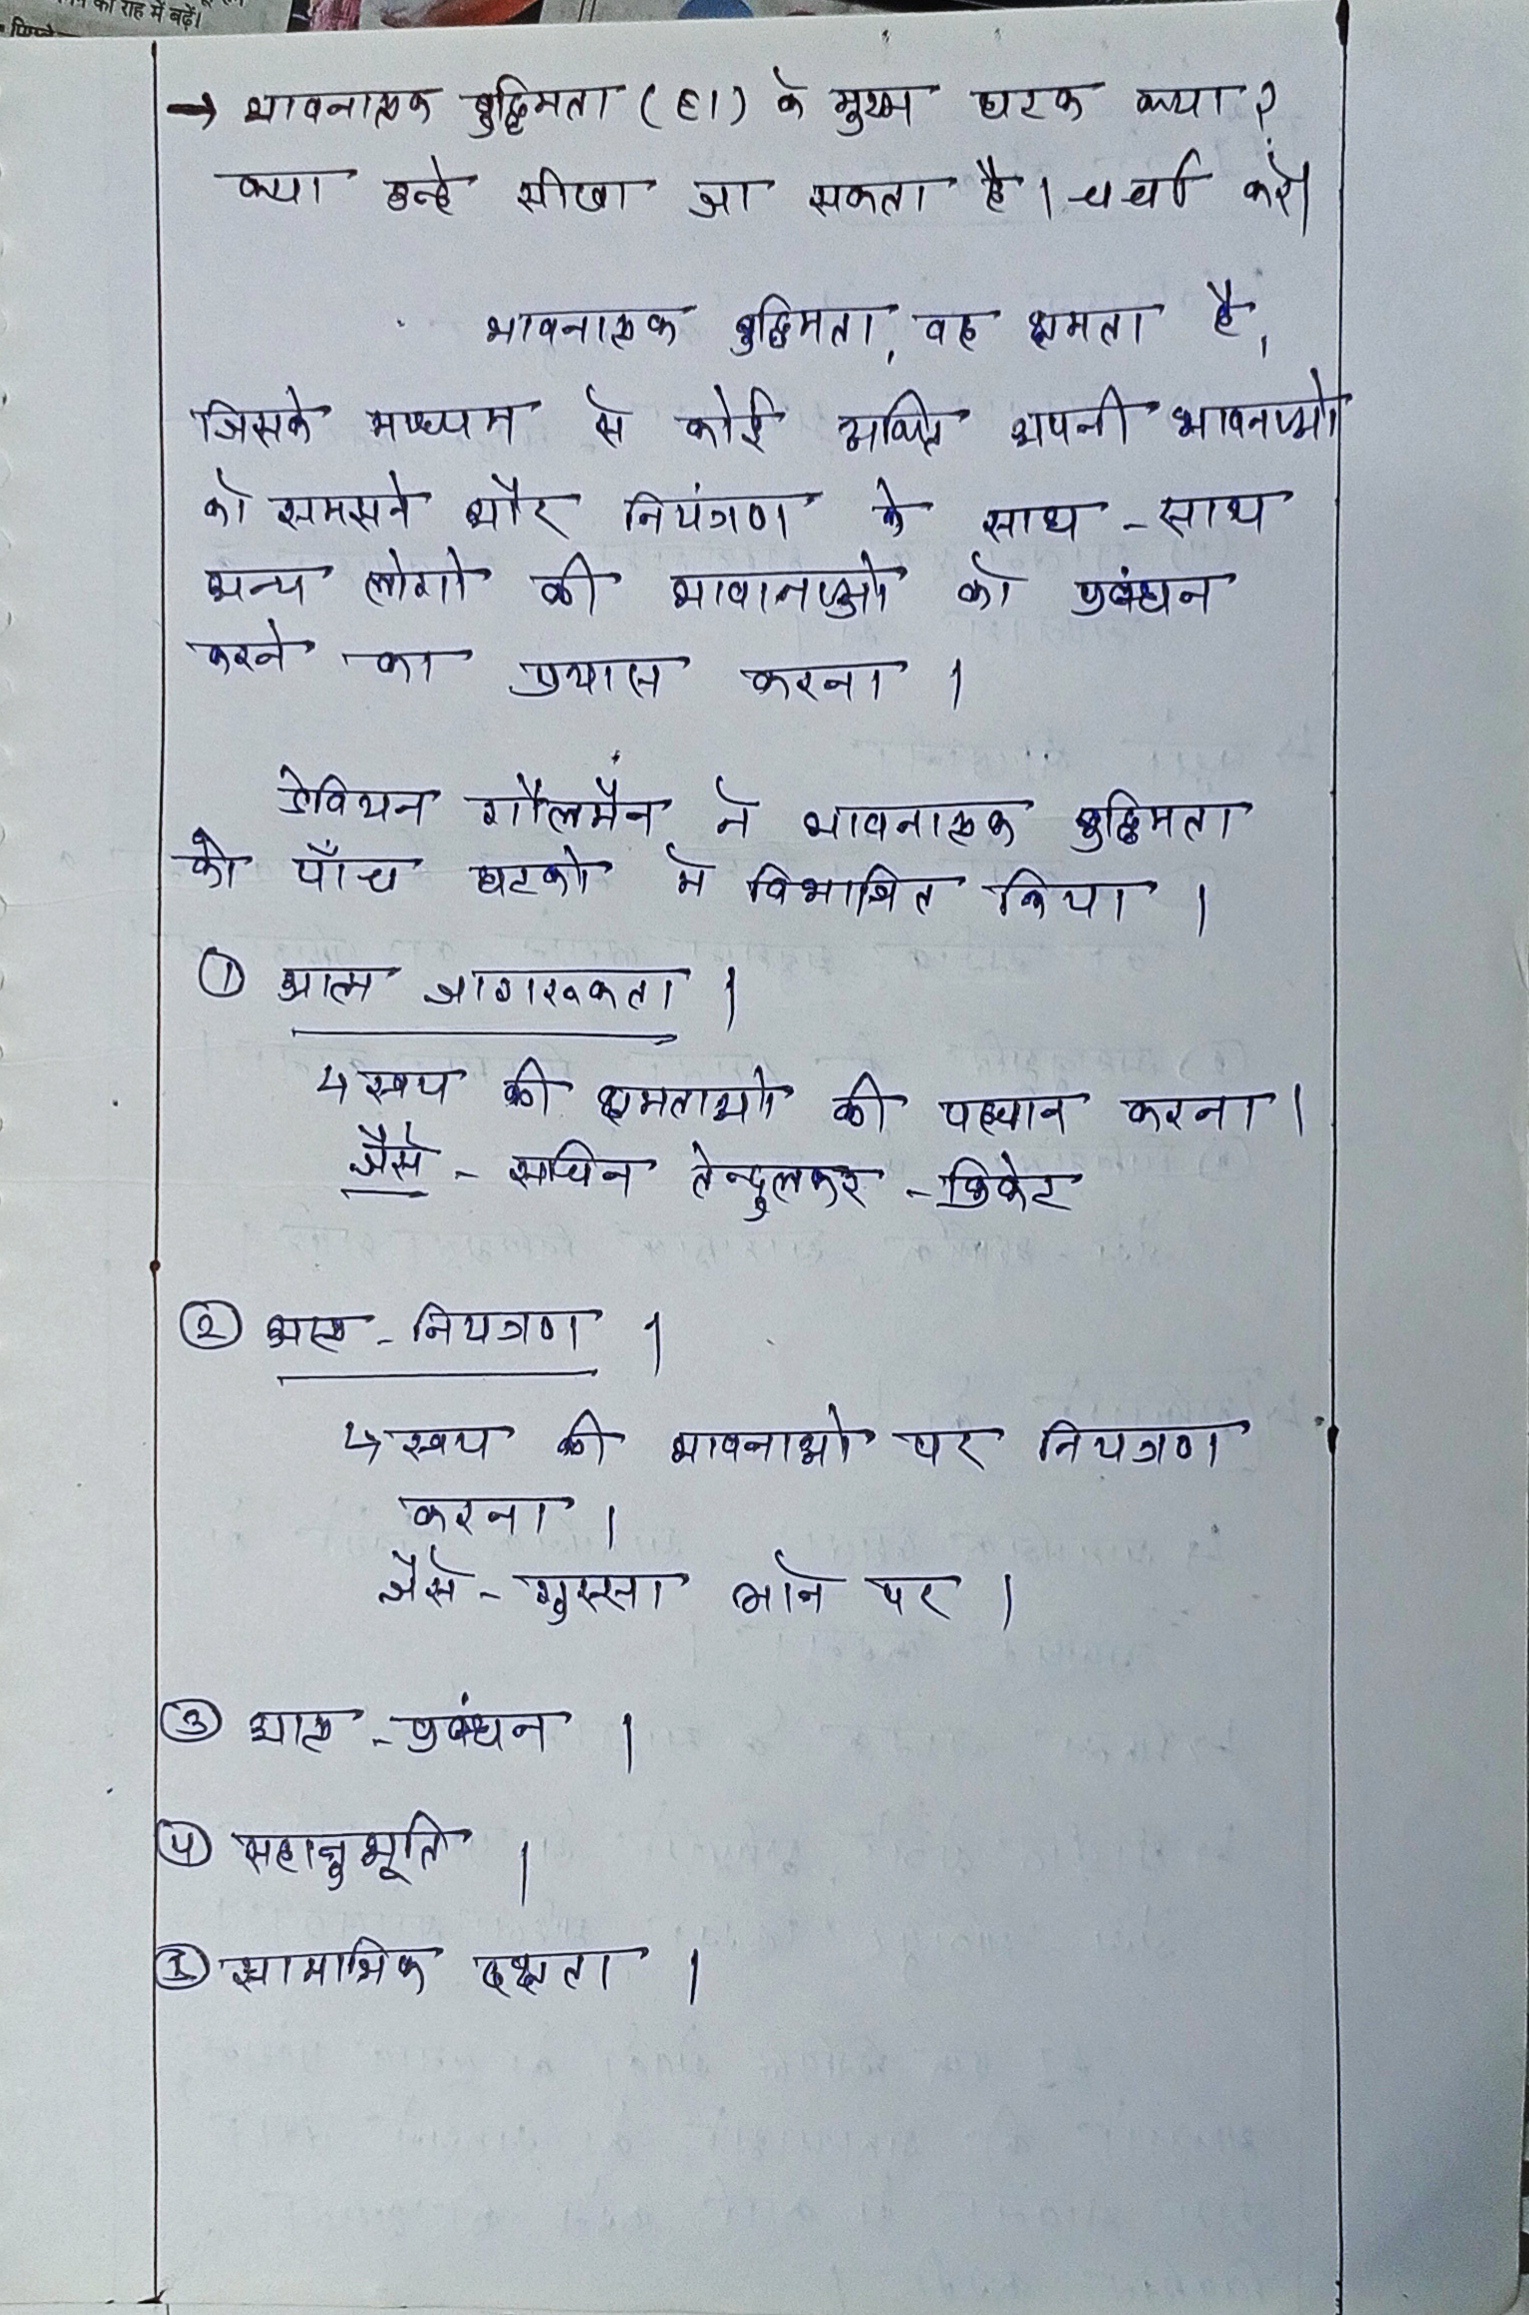 की राह में बढ़ें।
→ भावनात्मक बुद्धिमता (EI) के मुख्य घटक क्या?
क्या उन्हे सीखा जा सकता है। चर्चा करें।
भावनात्मक बुद्धिमता, वह क्षमता है,
जिसके माध्यम से कोई व्यक्ति अपनी भावनाओ
को समझने और नियंत्रण के साथ-साथ
अन्य लोगो की भावानाओ को प्रबंधन
करने का प्रयास करना।
डेवियन गौलमैन ने भावनात्मक बुद्धिमता
को पाँच घटको मे विभाजित किया।
① आत्म जागरूकता।
↳ स्वय की क्षमताओ की पहचान करना।
जैसे - सचिन तेन्दुलकर - क्रिकेट
② आत्म-नियत्रण।
↳ स्वय की भावनाओ पर नियत्रण
करना।
जैसे - गुस्सा आने पर।
③ आत्म-प्रबंधन।
④ सहानुभूति।
⑤ सामाजिक दक्षता।